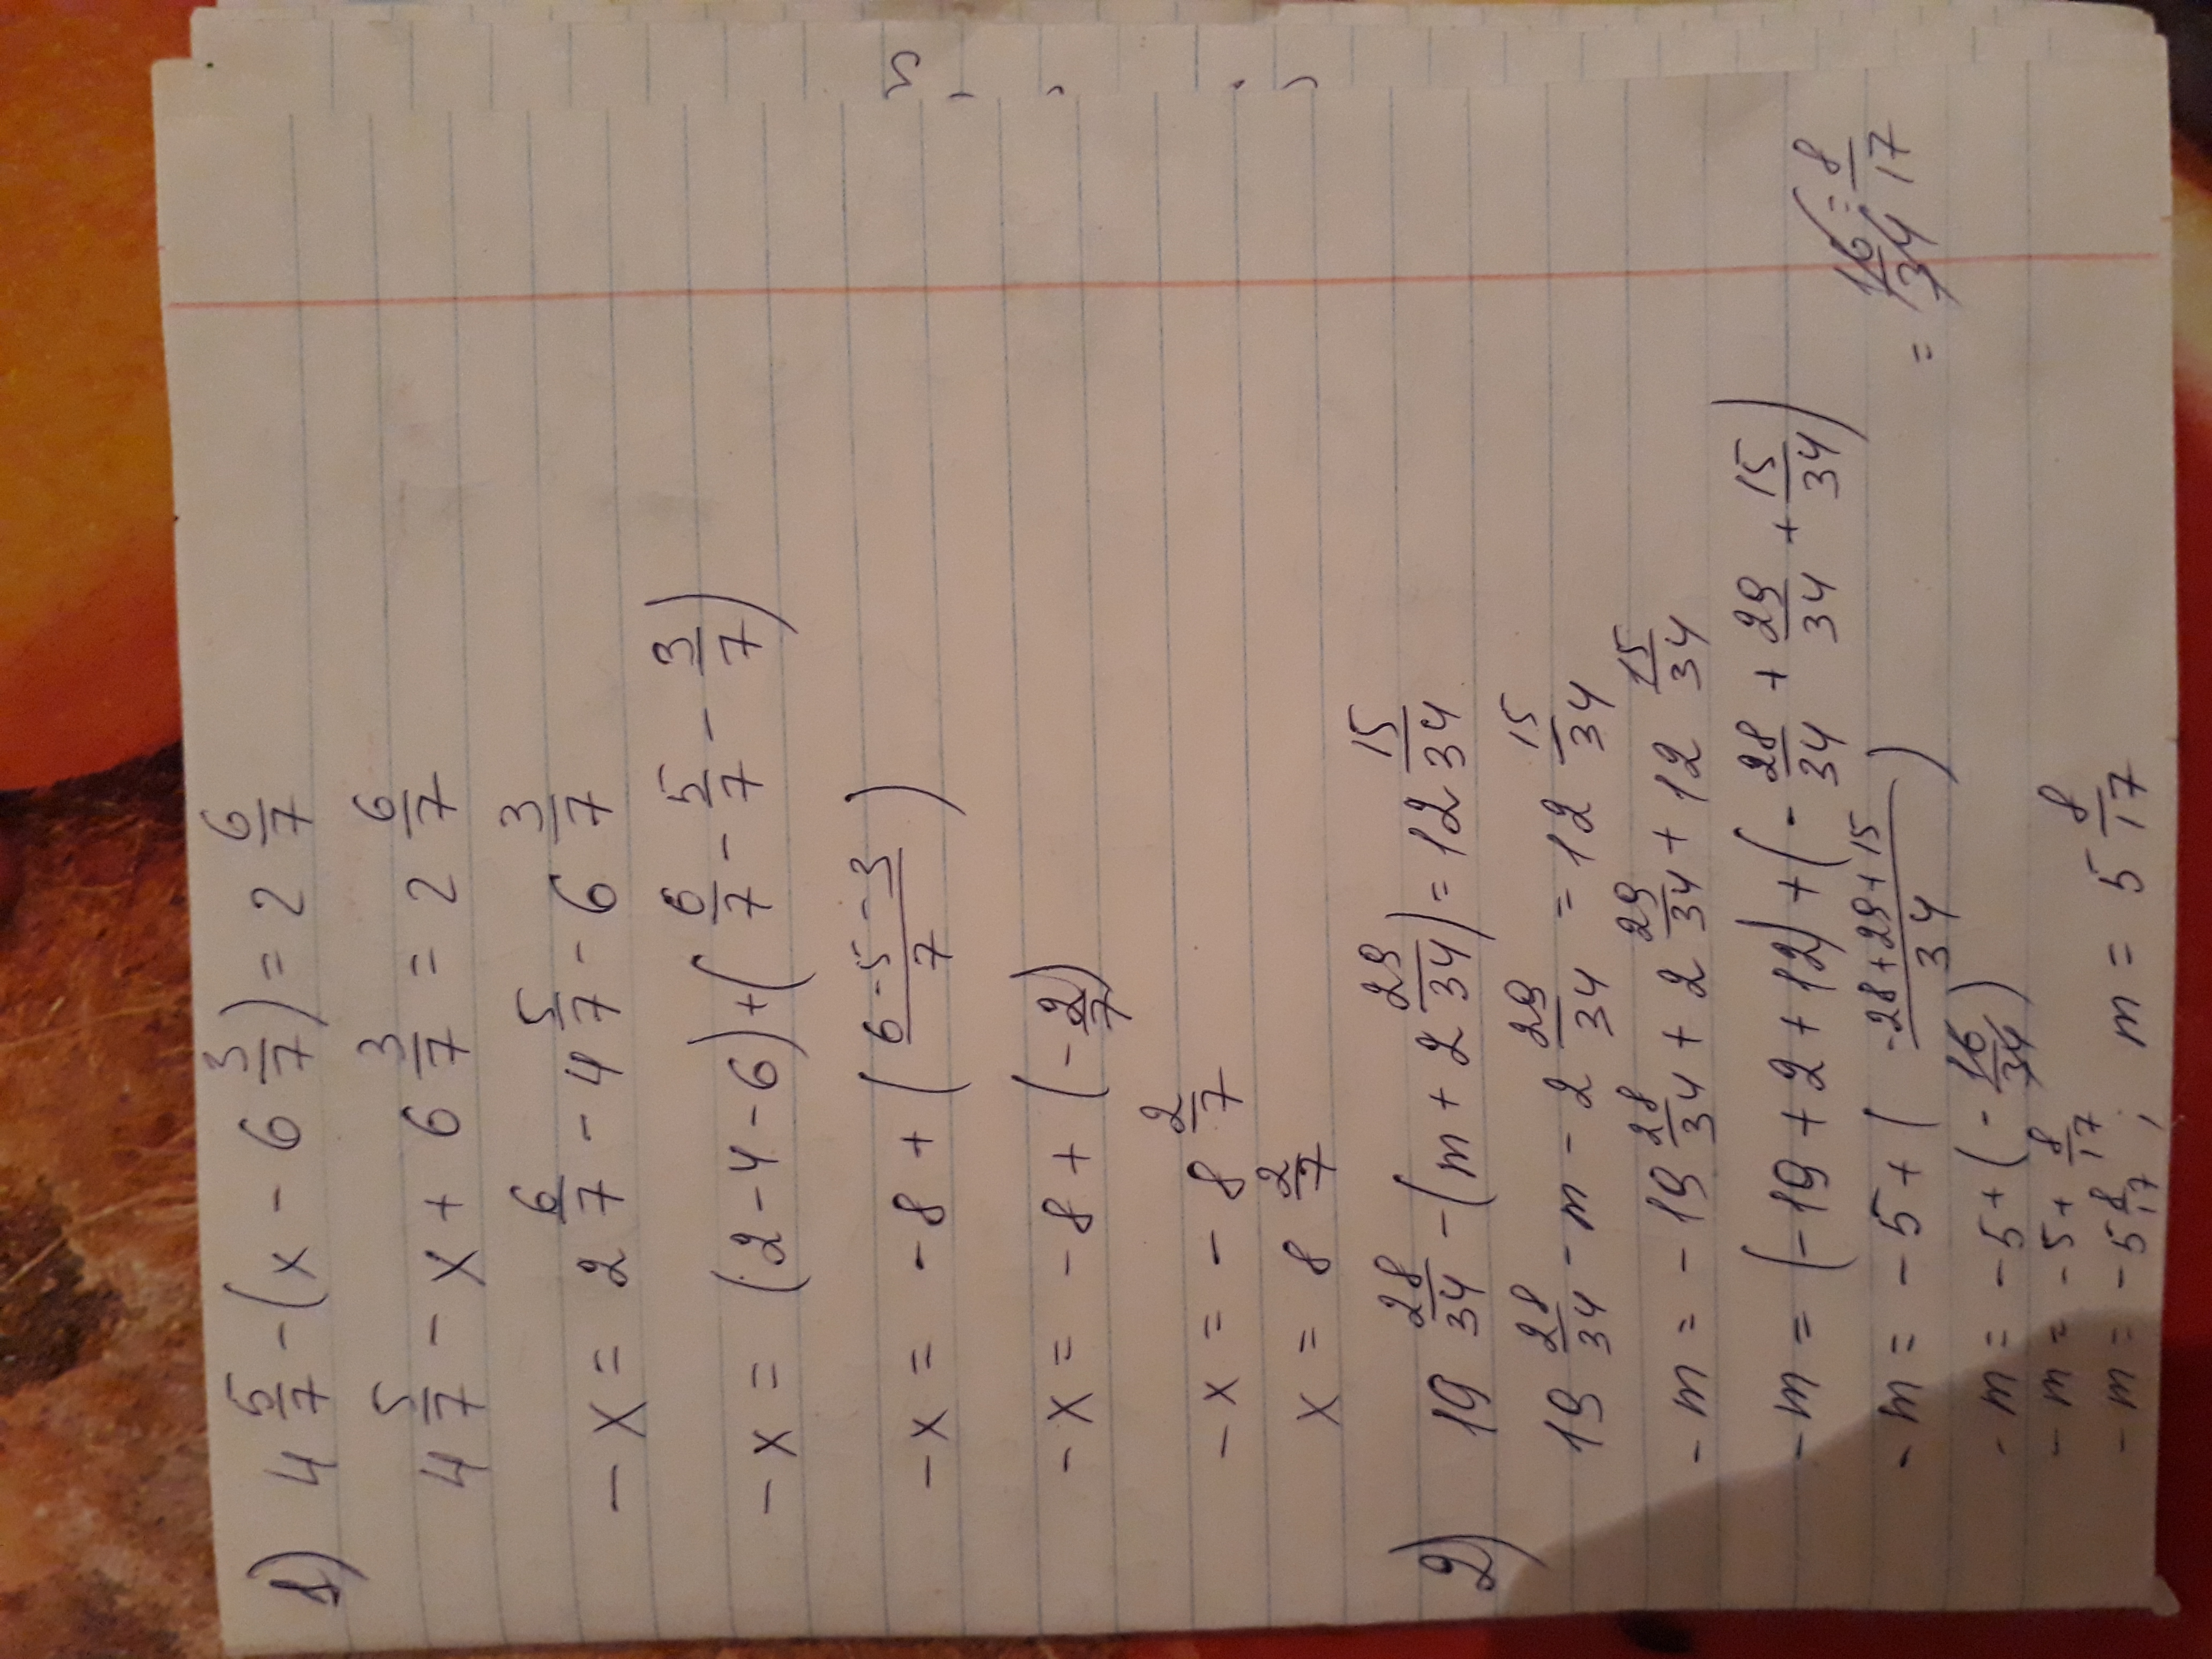 1) 4 5/7 - (x - 6 3/7) = 2 6/7
4 5/7 - x + 6 3/7 = 2 6/7
-x = 2 6/7 - 4 5/7 - 6 3/7
-x = (2 - 4 - 6) + (6/7 - 5/7 - 3/7)
-x = -8 + (6 - 5 - 3 / 7)
-x = -8 + (-2/7)
-x = -8 2/7
x = 8 2/7
2) 19 28/34 - (m + 2 29/34) = 12 15/34
19 28/34 - m - 2 29/34 = 12 15/34
-m = -19 28/34 + 2 29/34 + 12 15/34
-m = (-19 + 2 + 12) + (-28/34 + 29/34 + 15/34)
-m = -5 + (-28 + 29 + 15 / 34) = 16/34 = 8/17
-m = -5 + (-16/34)
-m = -5 + 8/17
-m = -5 8/17; m = 5 8/17